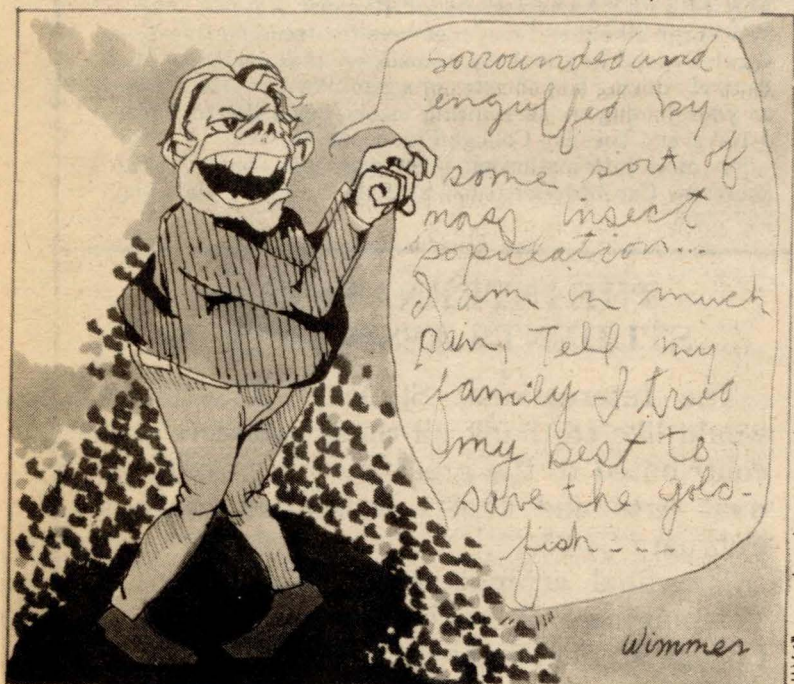 sorrounded and
engulfed by
some sort of
nasy insect
population...
I am in much
pain, Tell my
family I tried
my best to
save the gold-
fish---
Wimmer